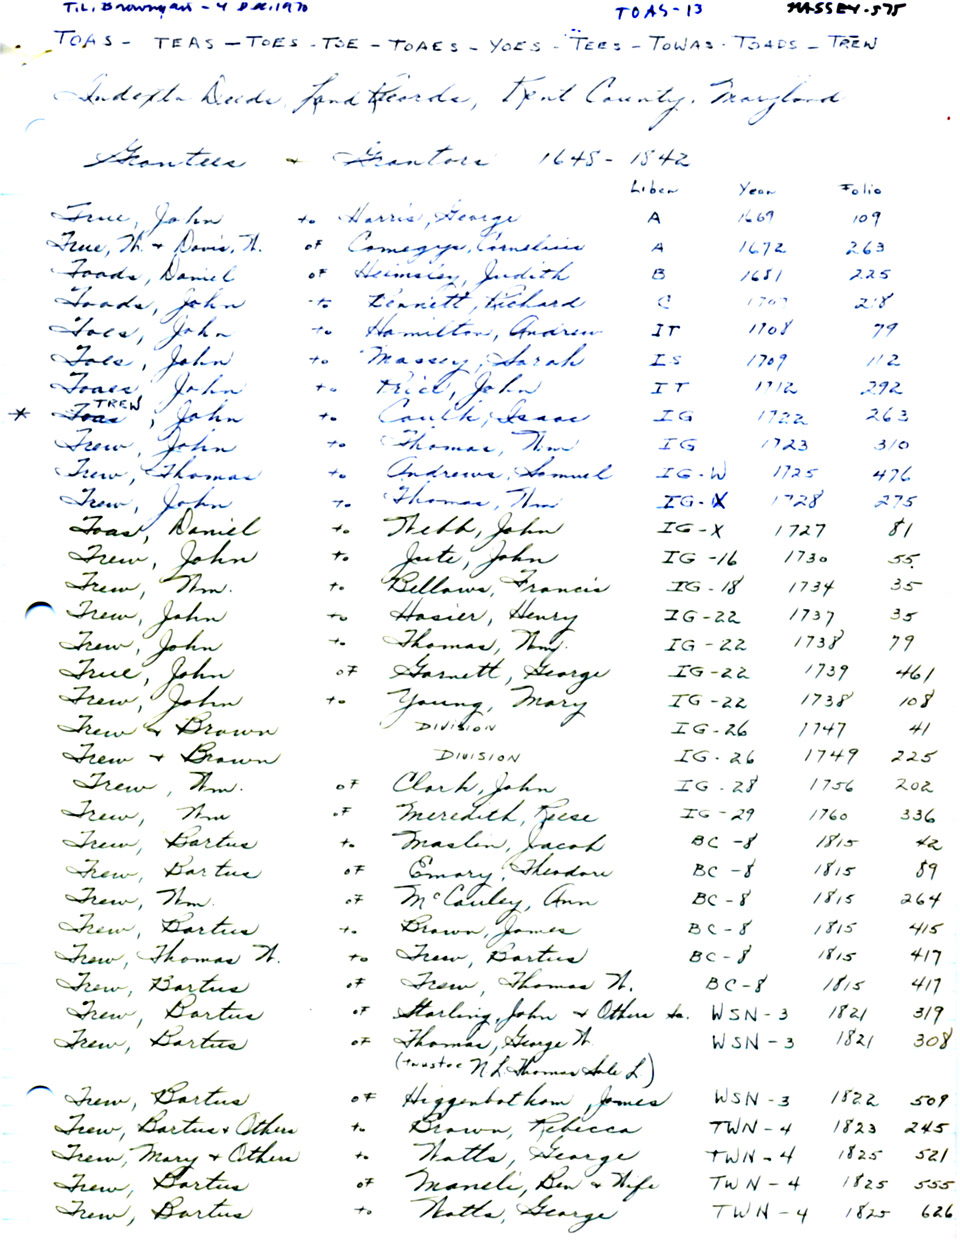 T.L. Browngan - 4 Dec, 1970 TOAS-13 MASSEY-575
TOAS - TEAS - TOES - TOE - TOAES - YOES - TEES - TOWAS - TOADS - TREW
Index to Deeds, Land Records, Kent County, Maryland
Grantees + Grantors 1648 - 1842
Liber Year Folio
True, John to Harris, George A 1669 109
True, W. + Davis, W. of Comegys, Cornelius A 1672 263
Toads, Daniel of Hemsley, Judith B 1681 225
Toads, John to Bennett, Richard C 218
Toes, John to Hamilton, Andrew IT 1708 79
Toes, John to Massey, Sarah IS 1709 112
Toaes, John to Price, John IT 1712 292
TREW
* Toas, John to Caulk, Isaac IG 1722 263
Trew, John to Thomas, Wm IG 1723 310
Trew, Thomas to Andrews, Samuel IG-W 1725 476
Trew, John to Thomas, Wm IG-X 1728 275
Toas, Daniel to Webb, John IG-X 1727 81
Trew, John to Jute, John IG-16 1730 55
Trew, Wm. to Bellows, Francis IG-18 1734 35
Trew, John to Hosier, Henry IG-22 1737 35
Trew, John to Thomas, Wm. IG-22 1738 79
True, John of Garnett, George IG-22 1739 461
Trew, John to Young, Mary IG-22 1738 108
Trew + Brown DIVISION IG-26 1747 41
Trew + Brown DIVISION IG-26 1749 225
Trew, Wm. of Clark, John IG-28 1756 202
Trew, Wm of Meredith, Reese IG-29 1760 336
Trew, Bartus to Maslin, Jacob BC-8 1815 42
Trew, Bartus of Emory, Theodore BC-8 1815 89
Trew, Wm. of McCauley, Ann BC-8 1815 264
Trew, Bartus to Brown, James BC-8 1815 415
Trew, Thomas W. to Trew, Bartus BC-8 1815 417
Trew, Bartus of Trew, Thomas W. BC-8 1815 417
Trew, Bartus of Starling, John + Others to. WSN-3 1821 319
Trew, Bartus of Thomas, George W. WSN-3 1821 308
(trustee N L Thomas Sale L)
Trew, Bartus of Higgenbothom, James WSN-3 1822 509
Trew, Bartus + Others to Brown, Rebecca TWN-4 1823 245
Trew, Mary + Others to Watts, George TWN-4 1825 521
Trew, Bartus of Maneli, Ben + Wife TWN-4 1825 555
Trew, Bartus to Watts, George TWN-4 1825 626